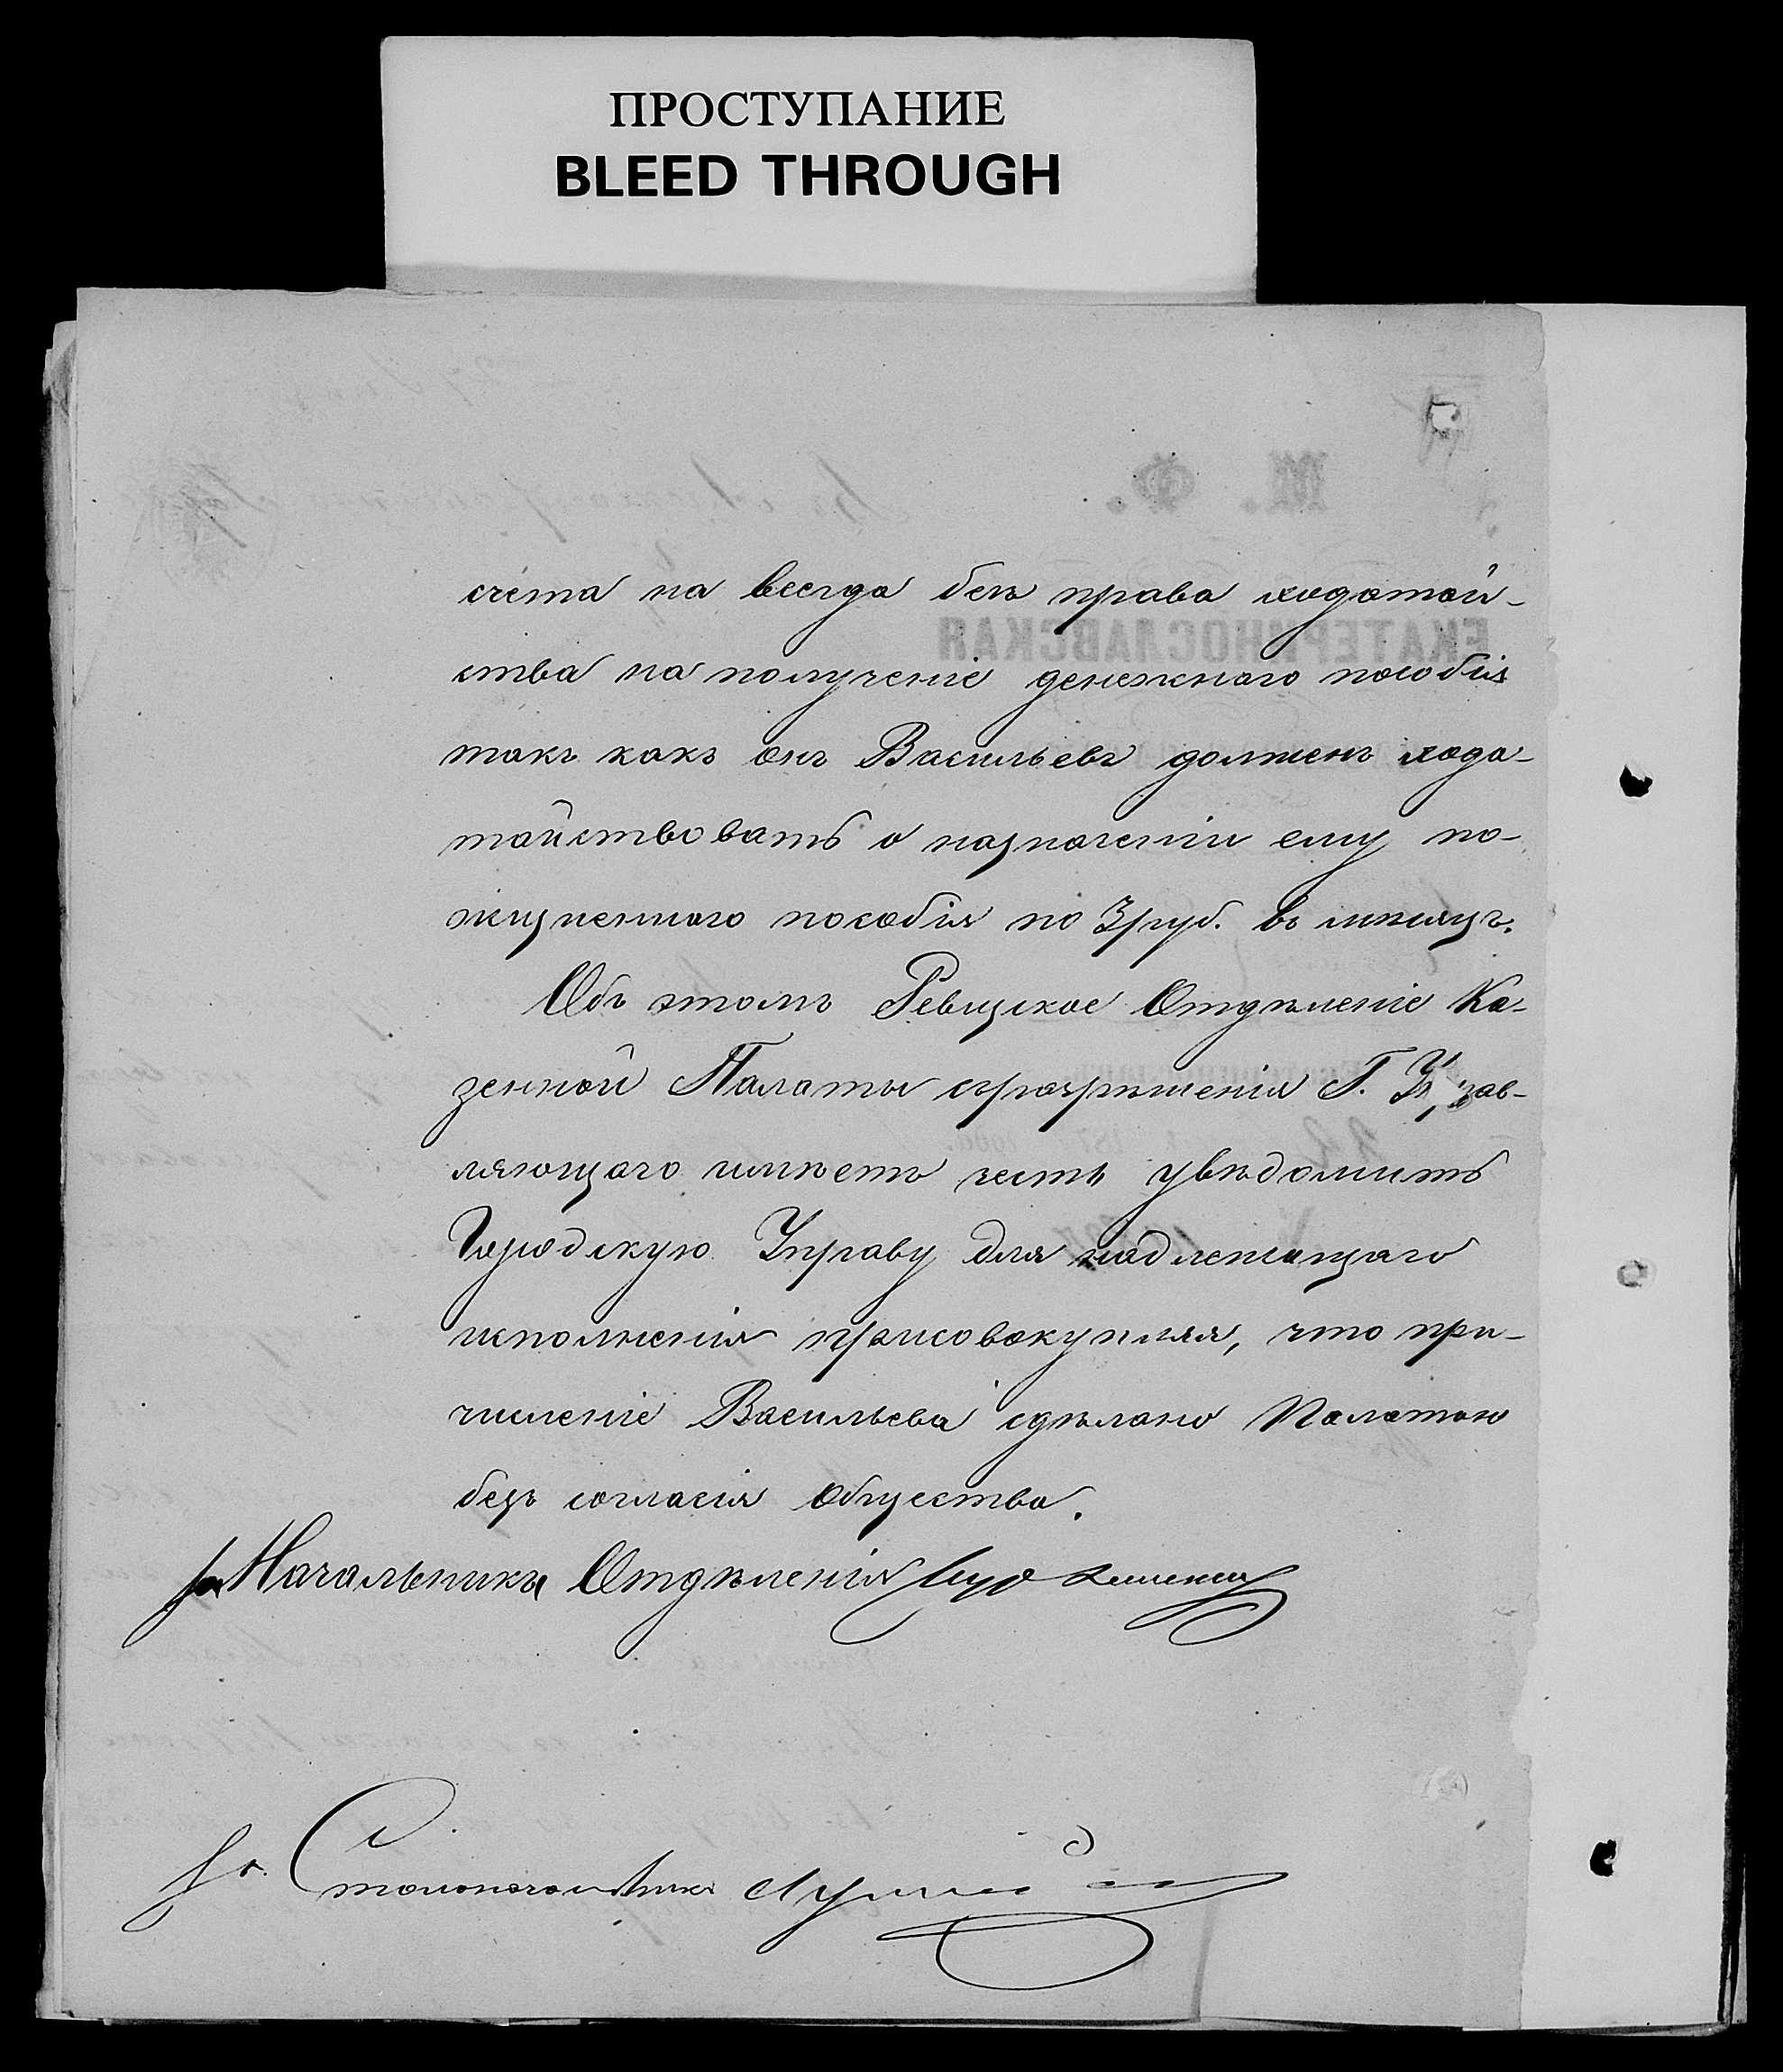 ПРОСТУПАНИЕ
BLEED THROUGH
счета на всегда безъ права ходатай-
ства на полученіе денежнаго пособія
такъ какъ онъ Васильевъ долженъ хода-
тайствовать о назначеніи ему по-
жизненнаго пособія по 3 руб. въ мѣсяцъ.
Объ этомъ Ревизское Отдѣленіе Ка-
зенной Палаты съ разрѣшенія Г. Управ-
ляющаго имѣетъ честь увѣдомить
Городскую Управу для надлежащаго
исполненія присовокупляя, что при-
численіе Васильева сдѣлано Палатою
безъ согласія общества.
за Начальника Отдѣленія
За Столоначальника
М. Ф.
ЕКАТЕРИНОСЛАВСКАЯ